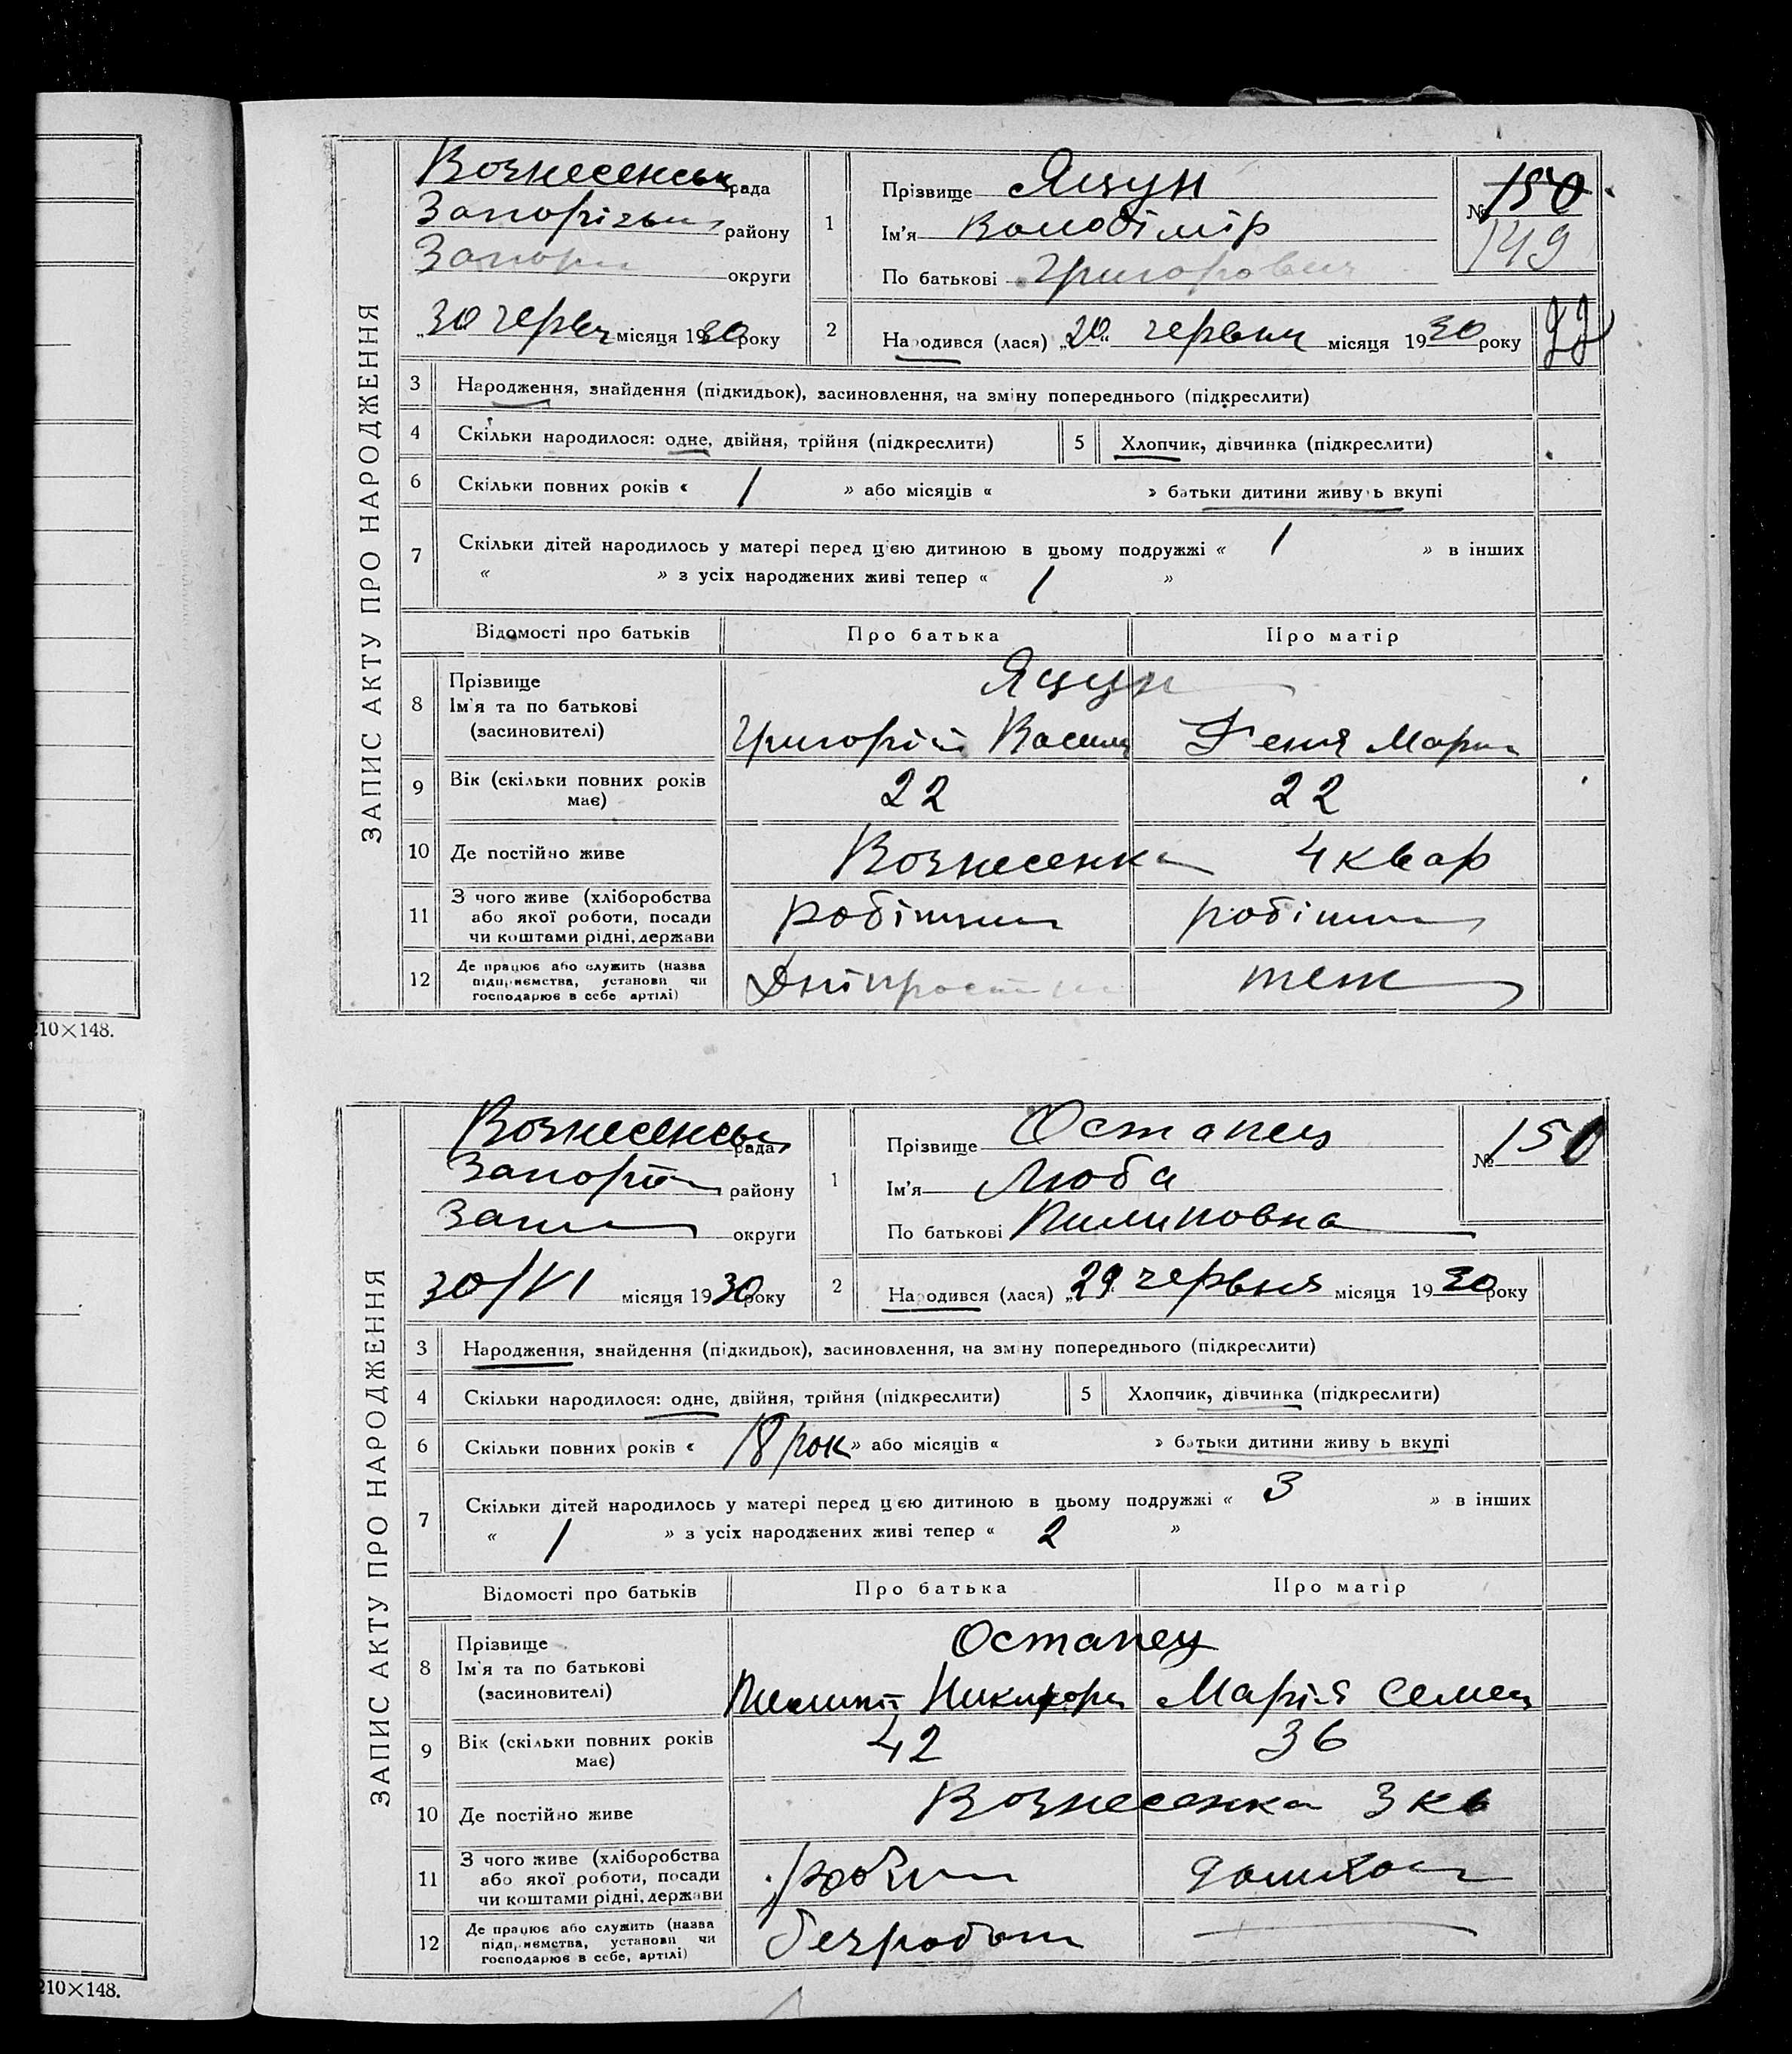 210×148.
210×148.
ЗАПИС АКТУ ПРО НАРОДЖЕННЯ
Вознесенськ рада
Запорізьк району
Запор округи
„30 червн місяця 1930 року
1
Прізвище Яцун
Ім'я Володімір
По батькові Григорович
№ 150
149
2
Народився (лася) „20“ червня місяця 1930 року
22
3 Народження, знайдення (підкидьок), засиновлення, на зміну попереднього (підкреслити)
4 Скільки народилося: одне, двійня, трійня (підкреслити)
5 Хлопчик, дівчинка (підкреслити)
6 Скільки повних років « 1 » або місяців « » батьки дитини живуть вкупі
7 Скільки дітей народилось у матері перед цією дитиною в цьому подружжі « 1 » в інших
« » з усіх народжених живі тепер « 1 »
Відомості про батьків Про батька Про матір
8 Прізвище
Ім'я та по батькові
(засиновителі)
Яцун
Григорій Васил Феня Марк
9 Вік (скільки повних років має) 22 22
10 Де постійно живе Вознесенка 4 квар
11 З чого живе (хліборобства
або якої роботи, посади
чи коштами рідні, держави
робітни робітни
12 Де працює або служить (назва
підприємства, установи чи
господарює в себе артілі)
Дніпрост теж
ЗАПИС АКТУ ПРО НАРОДЖЕННЯ
Вознесенськ рада
Запоріз району
Зап округи
30/VI місяця 1930 року
1
Прізвище Остапец
Ім'я Люба
По батькові Пилиповна
№ 150
2
Народився (лася) „29 червня місяця 1930 року
3 Народження, знайдення (підкидьок), засиновлення, на зміну попереднього (підкреслити)
4 Скільки народилося: одне, двійня, трійня (підкреслити)
5 Хлопчик, дівчинка (підкреслити)
6 Скільки повних років « 18 рок » або місяців « » батьки дитини живу ь вкупі
7 Скільки дітей народилось у матері перед цією дитиною в цьому подружжі « 3 » в інших
« 1 » з усіх народжених живі тепер « 2 »
Відомості про батьків Про батька Про матір
8 Прізвище
Ім'я та по батькові
(засиновителі)
Остапец
Пилип Никифор Марія Семен
9 Вік (скільки повних років має) 42 36
10 Де постійно живе Вознесенка 3 кв
11 З чого живе (хліборобства
або якої роботи, посади
чи коштами рідні, держави
робітн домхоз
12 Де працює або служить (назва
підприємства, установи чи
господарює в себе, артілі)
безробот